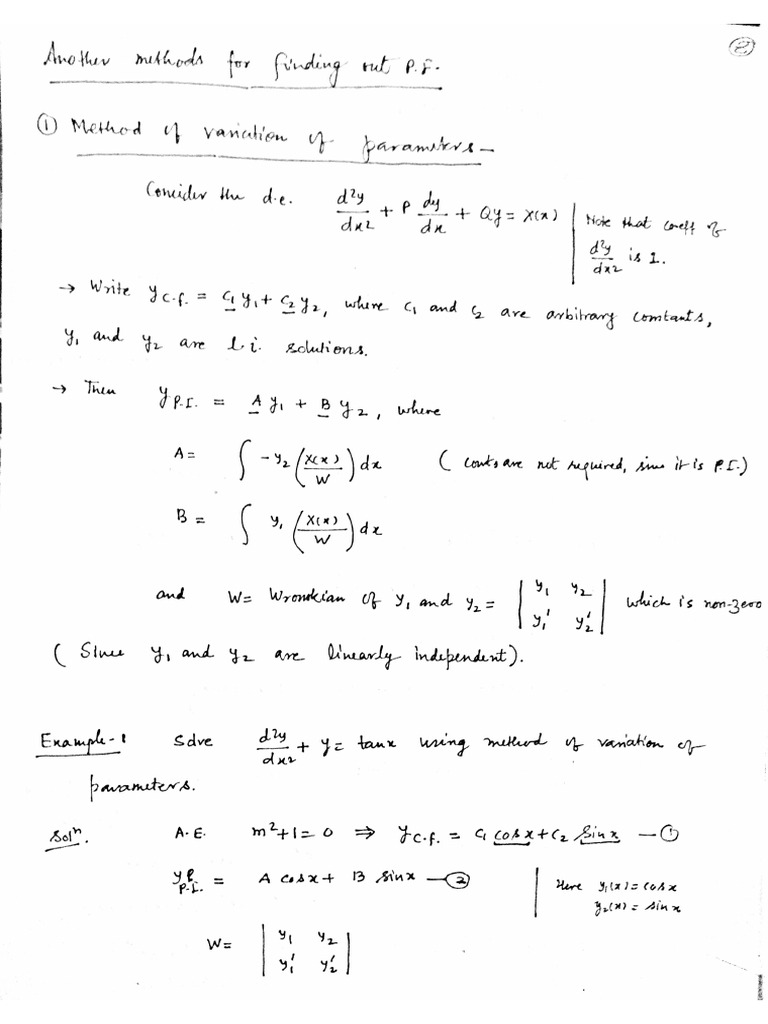 ②
Another methods for finding out P.I.
① Method of variation of parameters -
Consider the d.e. d²y/dx² + P dy/dx + Qy = X(x) | Note that coeff of d²y/dx² is 1.
→ Write y_C.f. = C₁ y₁ + C₂ y₂, where C₁ and C₂ are arbitrary constants,
y₁ and y₂ are l.i. solutions.
→ Then y_P.I. = A y₁ + B y₂, where
A = ∫ -y₂ (X(x)/W) dx (consts are not required, since it is P.I.)
B = ∫ y₁ (X(x)/W) dx
and W = Wronskian of y₁ and y₂ = | y₁ y₂ ; y₁' y₂' | which is non-zero
(Since y₁ and y₂ are linearly independent).
Example-1 Solve d²y/dx² + y = tanx using method of variation of
parameters.
Solⁿ. A.E. m²+1=0 ⇒ y_C.f. = C₁ cosx + C₂ Sinx — ①
y_P.I. = A cosx + B sinx — ② | Here y₁(x) = cosx
y₂(x) = sinx
W = | y₁ y₂ ; y₁' y₂' |